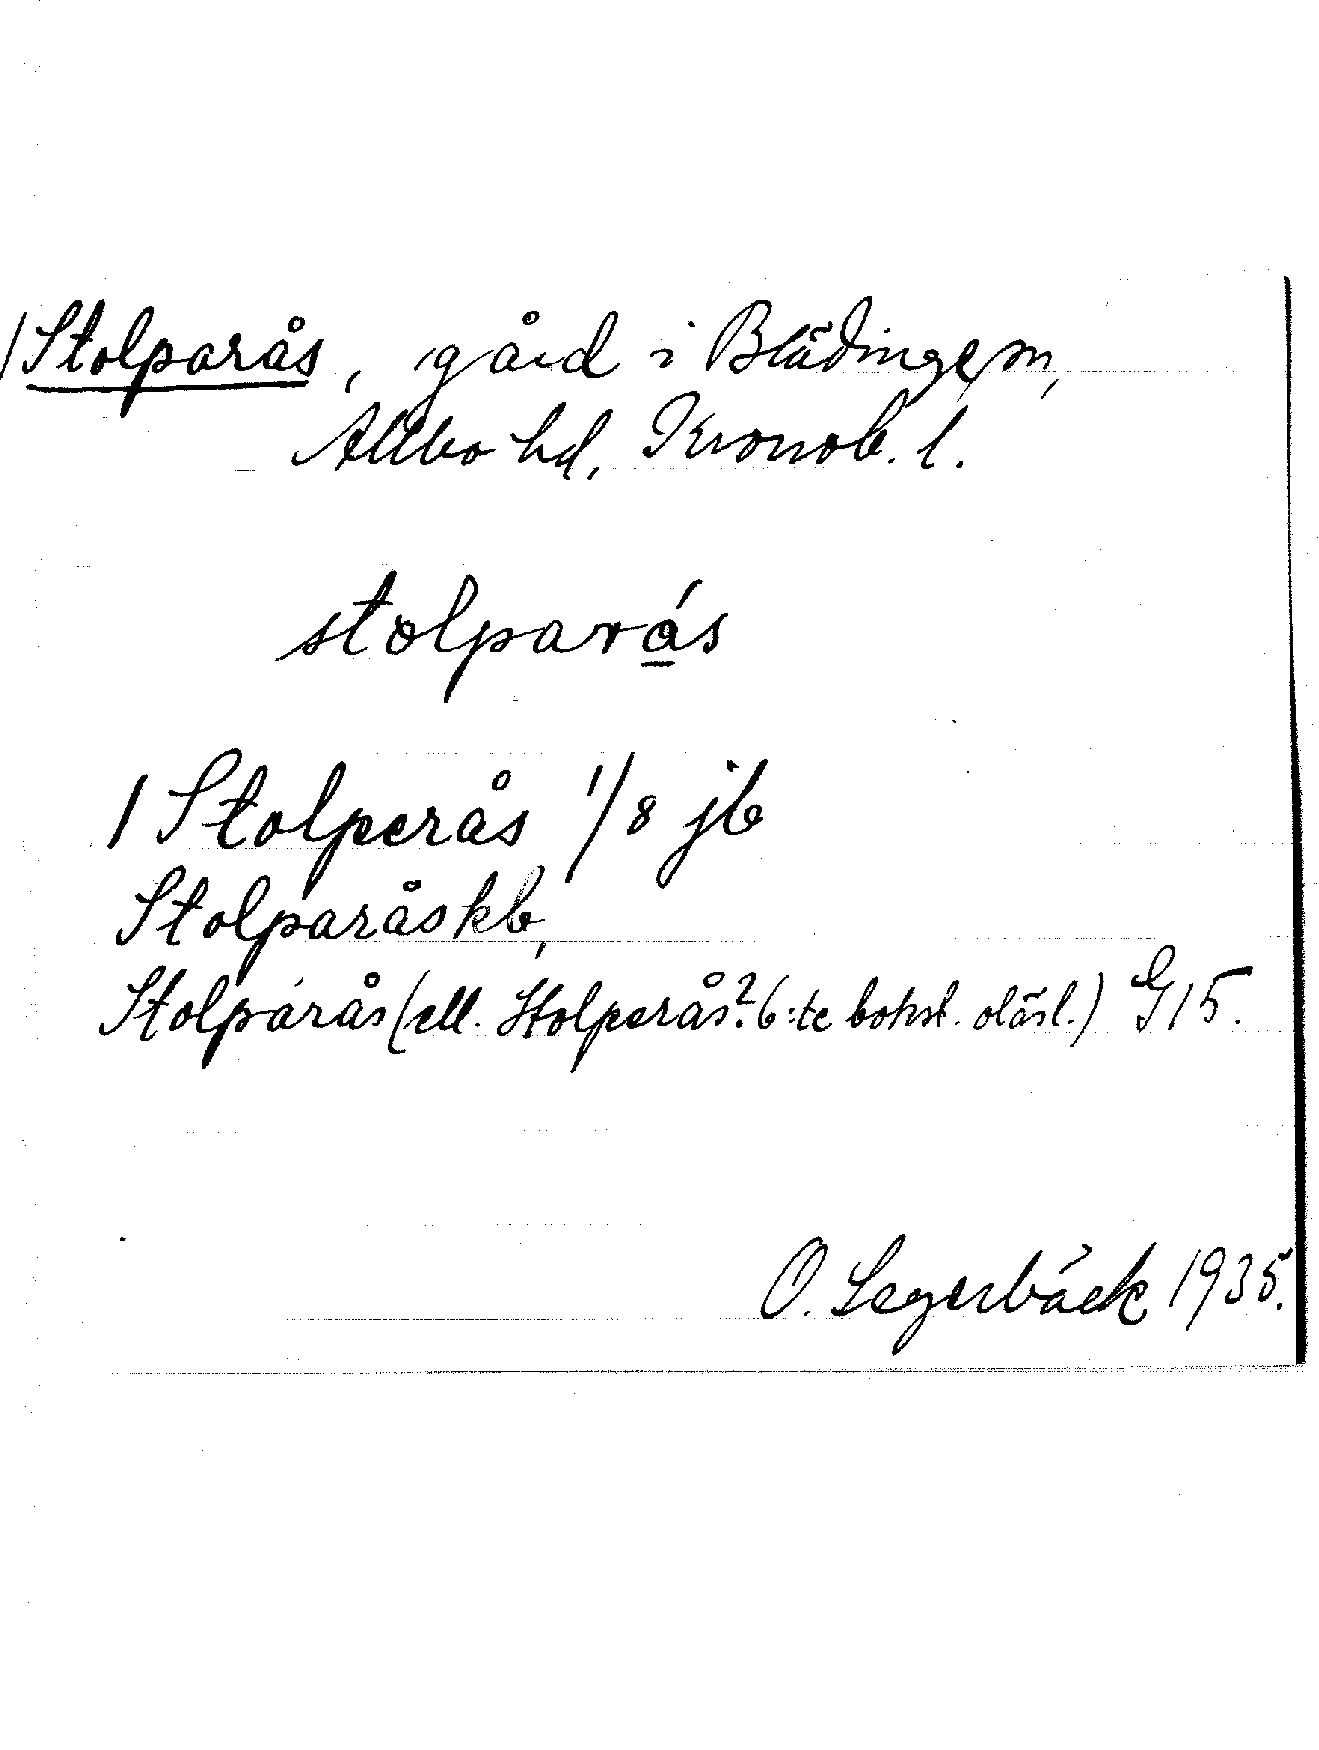 /Stolparås, gård i Blädinge sn,
Allbo hd, Kronob. l.
stolparás
/ Stolperås 1/8 jb
Stolparås kb,
Stolparås (ell. Stolperås? 6:te bokst. oläsl.) G15.
O. Segerbäck 1935.